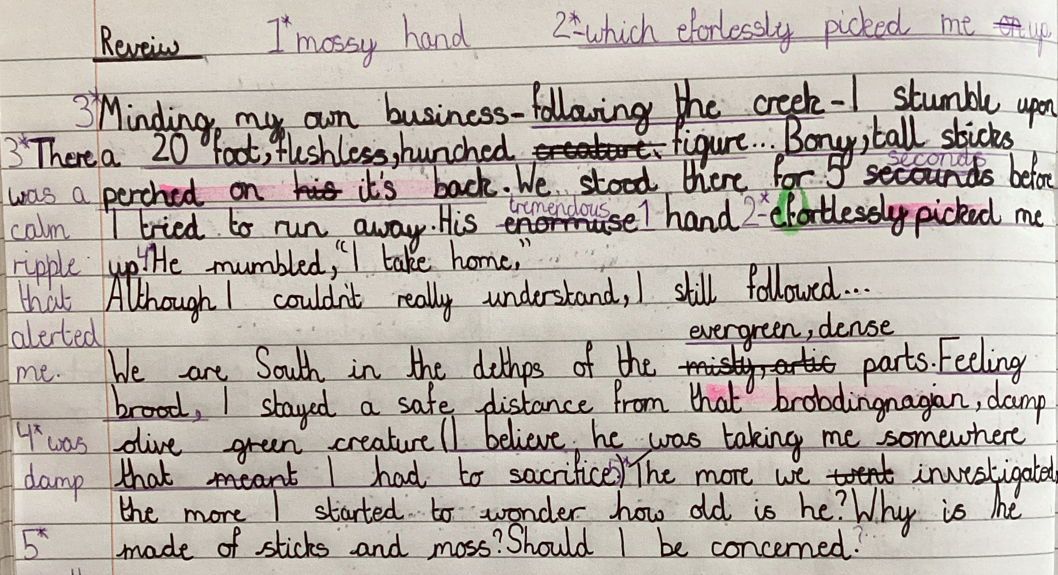 Reveiw 1*mossy hand 2*-which eforlessly picked me up
3*Minding my own business-following the creek-I stumble upon
3*There a 20 foot, fleshless, hunched creature. figure... Bony, tall sticks
seconds
was a perched on his it's back. We stood there for 5 secounds before
tremendous
calm I tried to run away. His enormuse 1 hand 2-*efortlessly picked me
ripple up.4*He mumbled, "I take home,"
that Although I couldn't really understand, I still followed...
alerted evergreen, dense
me. We are South in the dethps of the misty, artic parts. Feeling
brood, I stayed a safe distance from that brobdingnagian, damp
4*was olive green creature (I believe he was taking me somewhere
damp that meant I had to sacrifice)5*The more we went investigated,
the more I started to wonder how old is he? Why is he
5* made of sticks and moss? Should I be concerned?